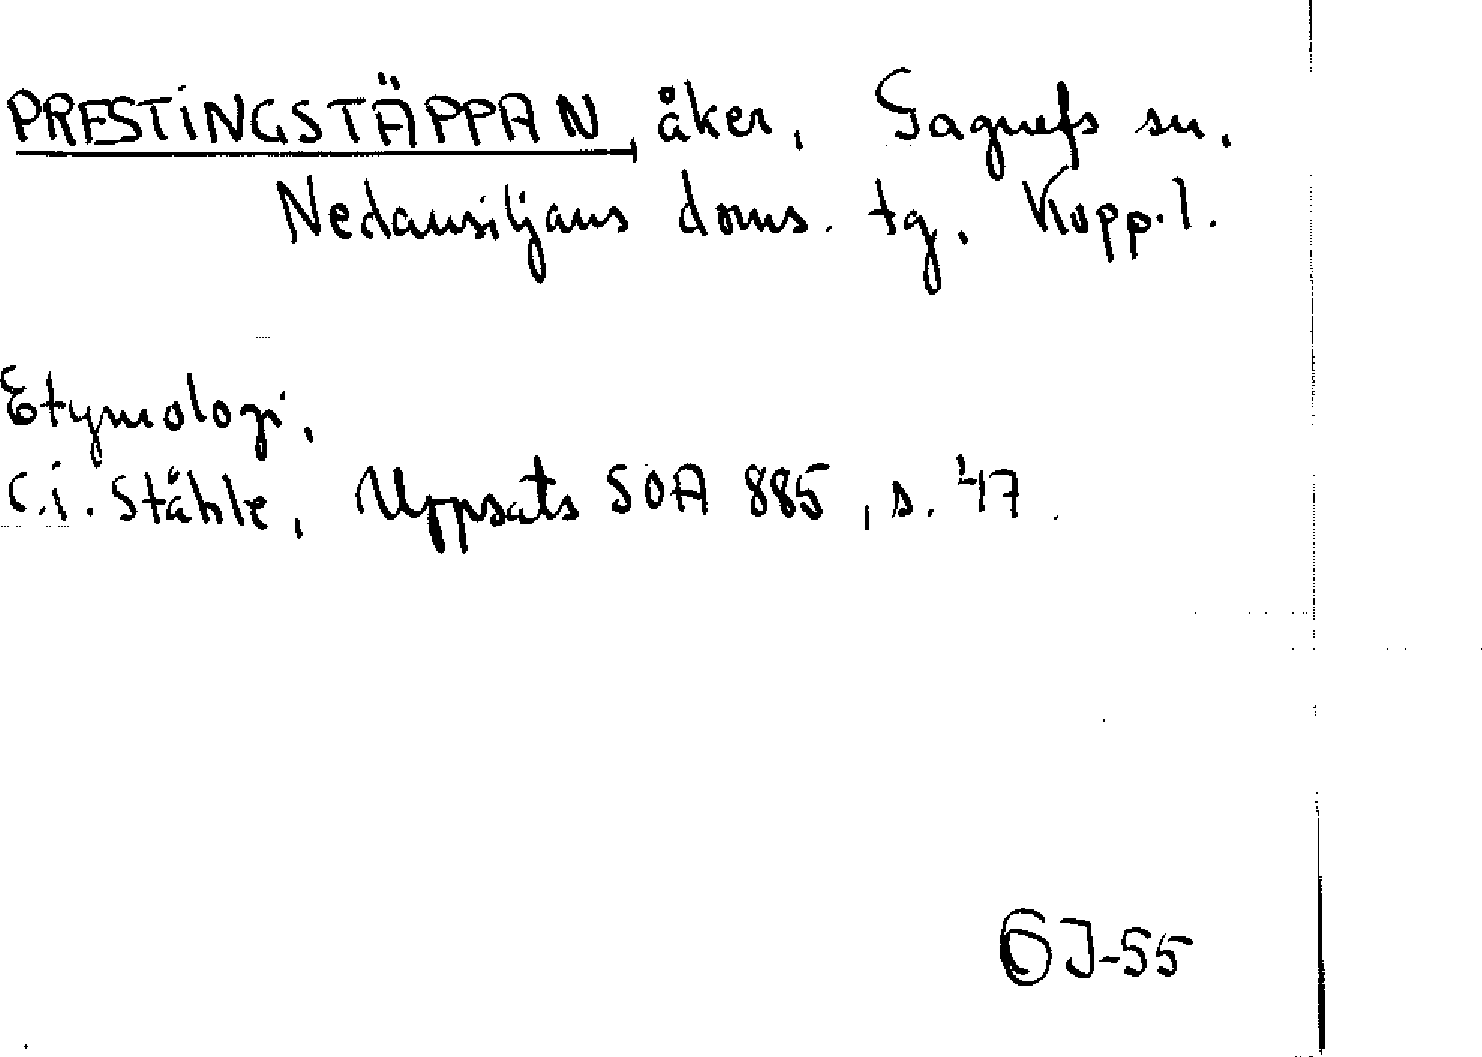 PRESTINGSTÄPPAN, åker, Gagnefs sn.
Nedansiljans doms. tg. Kopp.l.
Etymologi.
C.I. Ståhle, Uppsats SOA 885, s. 47.
GJ-55